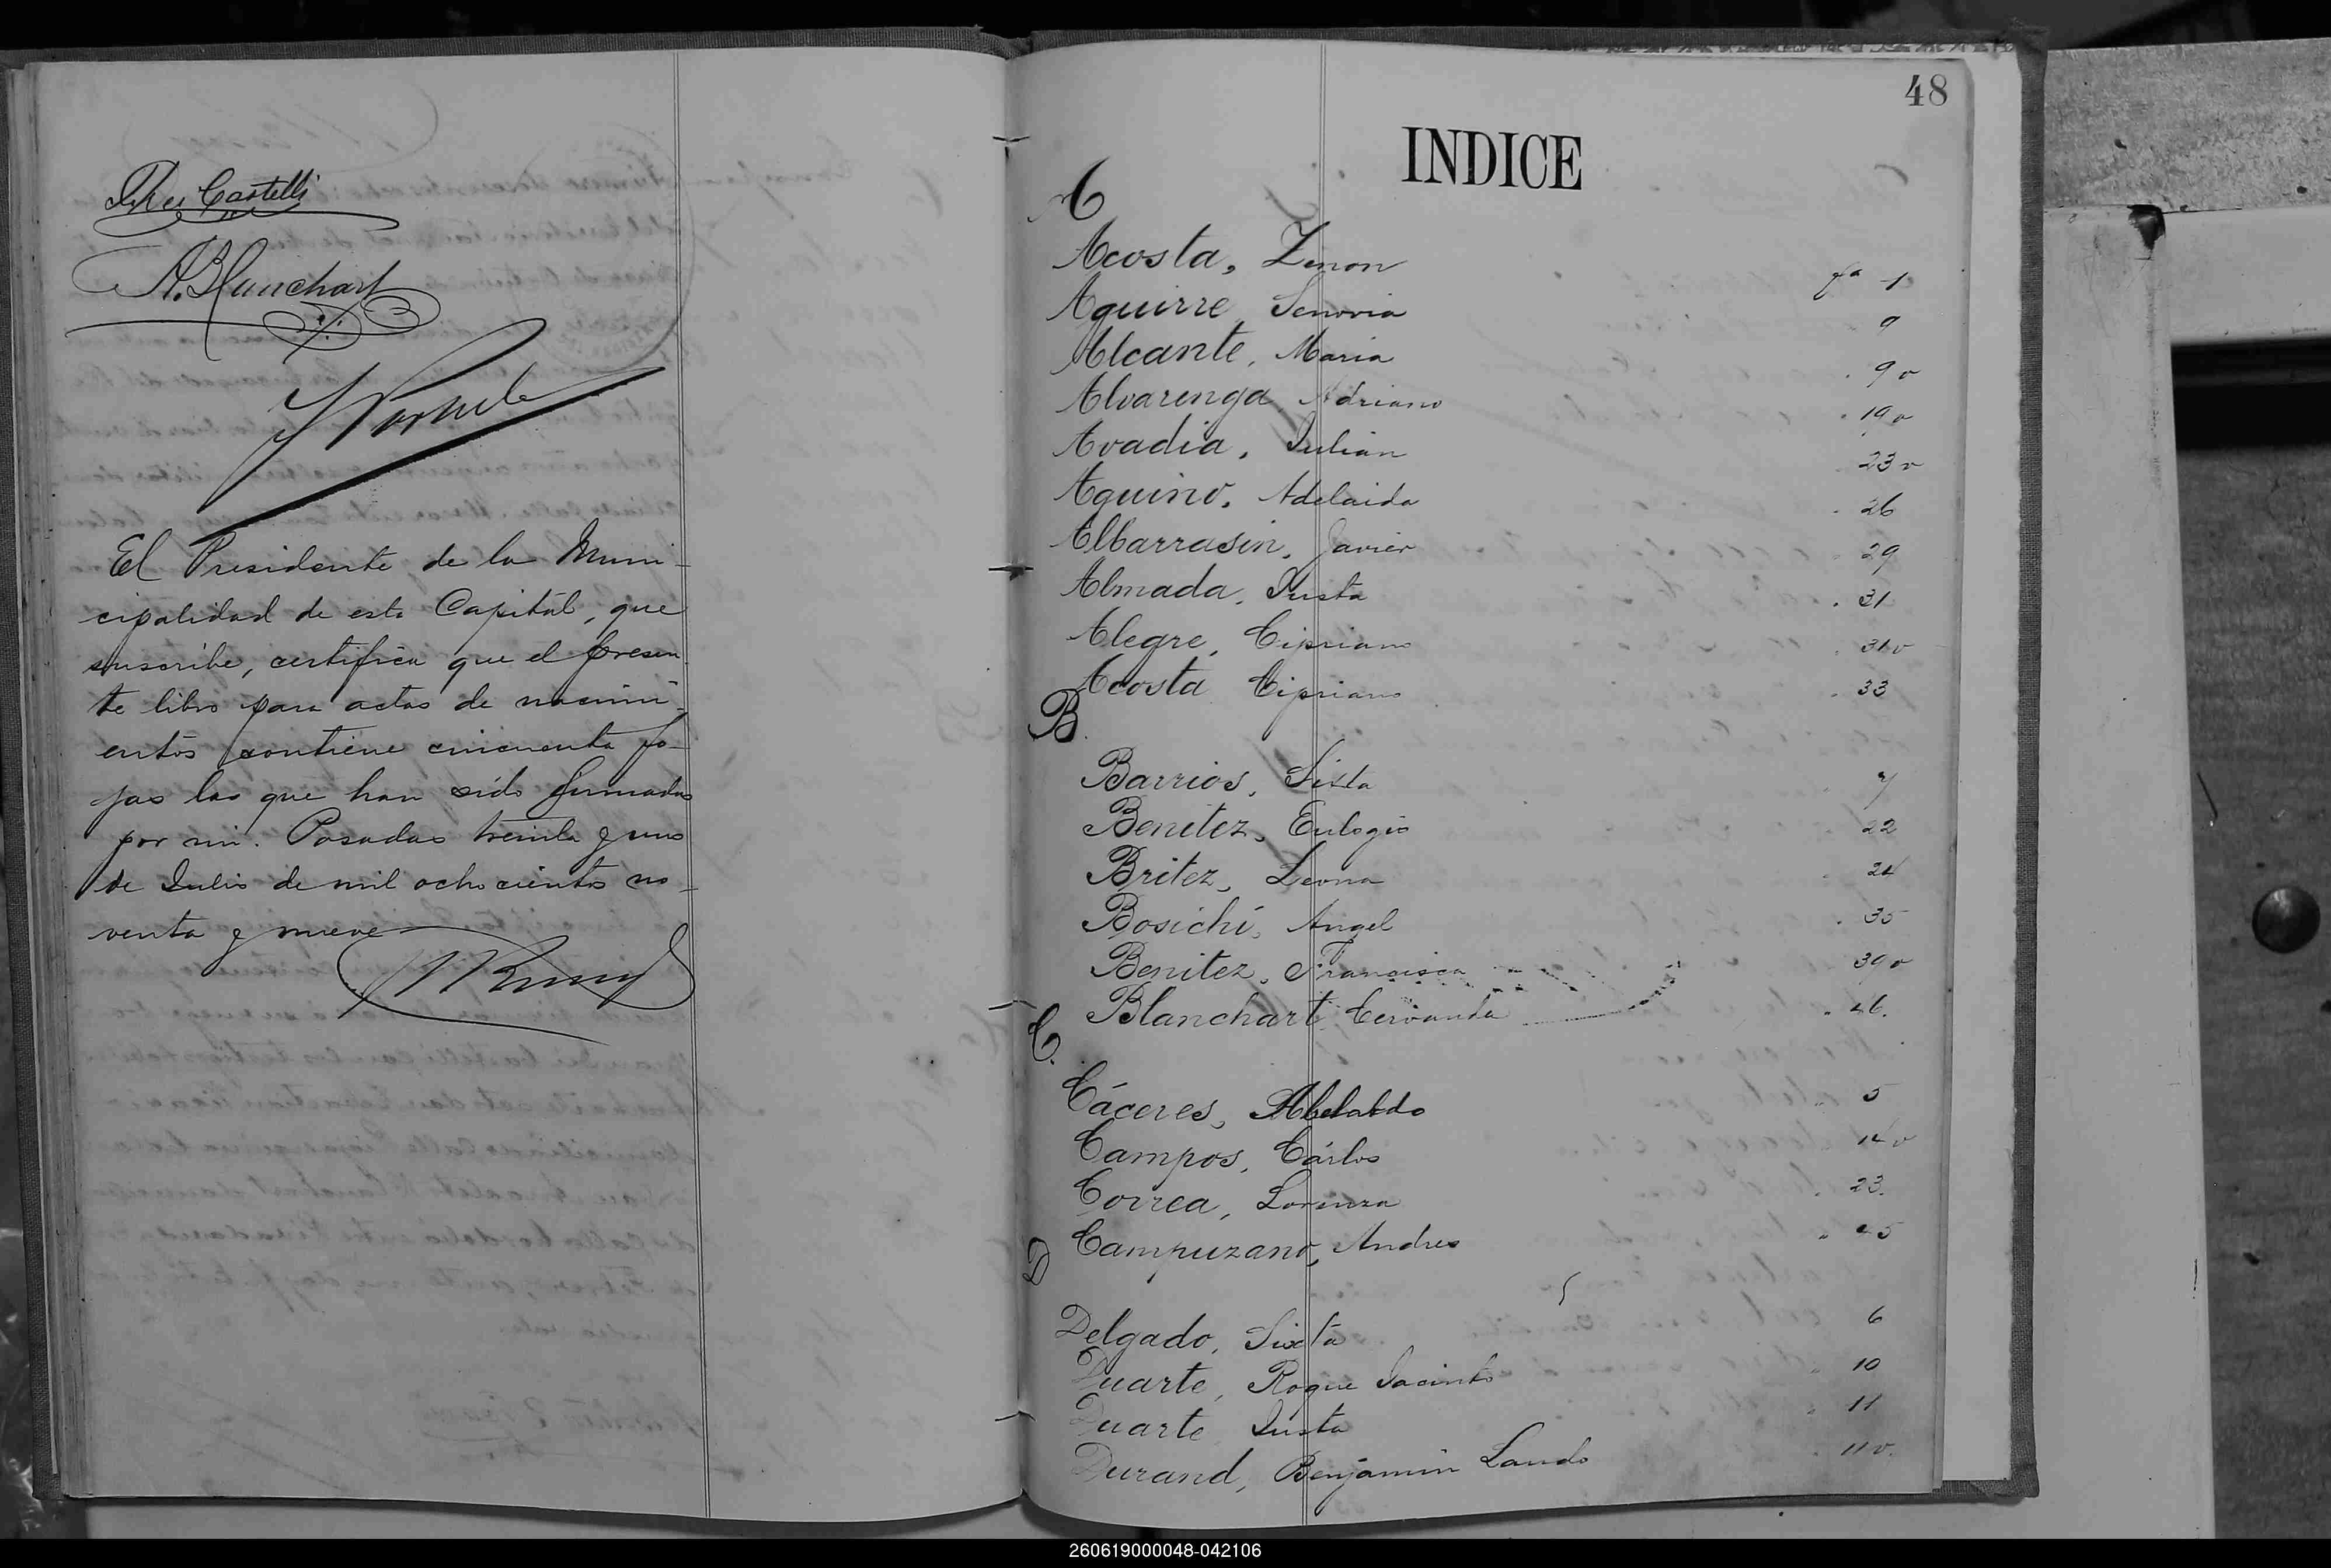 Castelli
A. Blanchart
El Presidente de la Muni-
cipalidad de esta Capital, que
suscribe, certifica que el presen-
te libro para actas de nacimi-
entos contiene cincuenta fo-
jas las que han sido firmadas
por mi. Posadas treinta y uno
de Julio de mil ochocientos no-
venta y nueve
48
INDICE
A
Acosta, Zenon fª 1
Aguirre, Senovia 9
Alcante, Maria 9 v
Alvarenga, Adriano 19 v
Avadia, Julian 23 v
Aquino, Adelaida 26
Albarrasin, Javier 29
Almada, Justa 31
Alegre, Cipriano 31 v
Acosta Cipriano 33
B.
Barrios, Sixta 7
Benitez, Eulogio 22
Britez, Leona 24
Bosichi, Angel 35
Benitez, Francisca 39 v
Blanchart 46.
C.
Cáceres, Abelardo 5
Campos, Cárlos 14 v
Correa, Lorenza 23.
Campuzano, Andres 45
D
Delgado, Sixta 6
Duarte, Roque Jacinto 10
Duarte Justa 11
Durand, Benjamin 11 v.
260619000048-042106